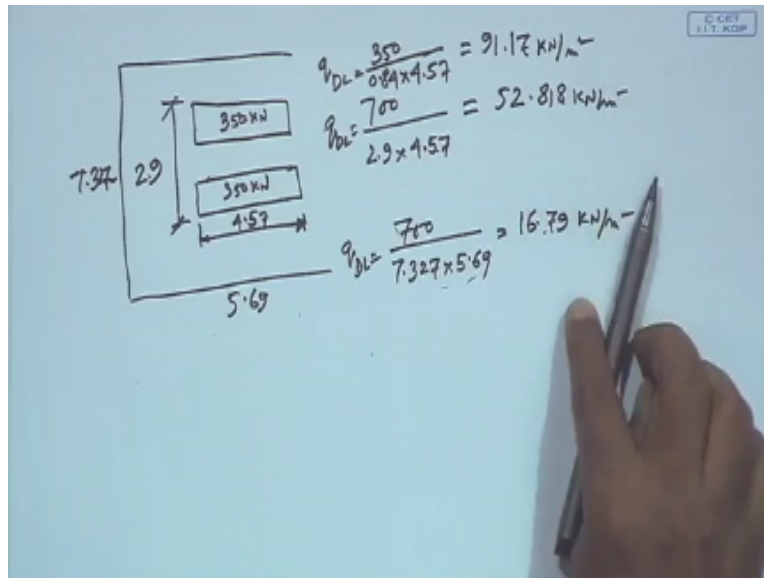 © CET
I.I.T. KGP
q_DL = 350 / 0.84×4.57 = 91.17 KN/m²
350 KN
q_DL = 700 / 2.9×4.57 = 52.818 KN/m²
7.37
2.9
350 KN
4.57
q_DL = 700 / 7.327×5.69 = 16.79 KN/m²
5.69